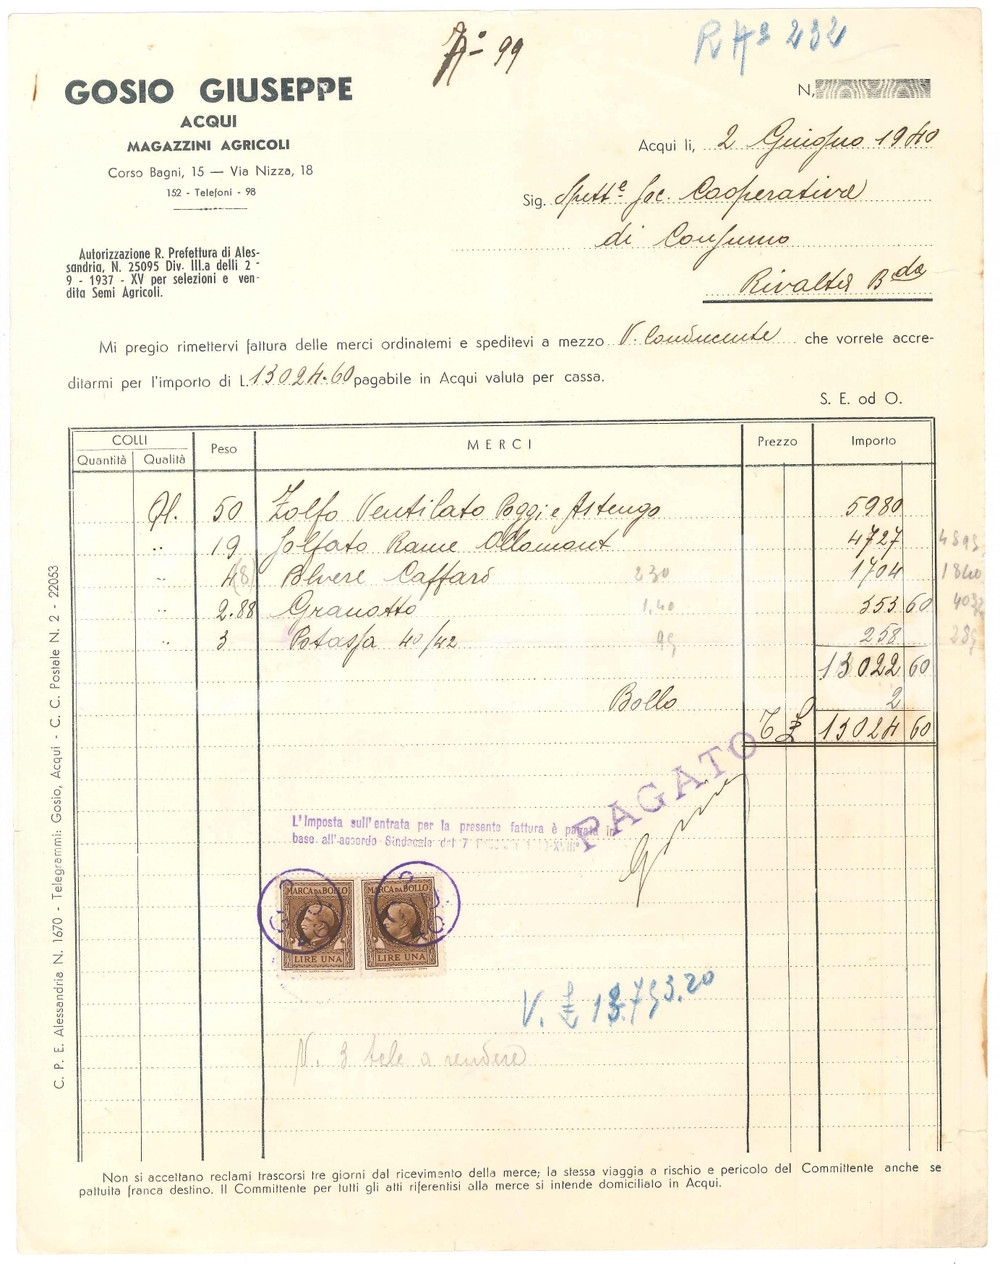 Nº 99
R H 3 232
GOSIO GIUSEPPE
ACQUI
MAGAZZINI AGRICOLI
Corso Bagni, 15 — Via Nizza, 18
152 - Telefoni - 98
N.
Acqui li, 2 Giugno 1940
Sig. Spett.e Soc. Cooperativa
di Consumo
Rivalta B.da
Autorizzazione R. Prefettura di Ales-
sandria, N. 25095 Div. III.a delli 2 -
9 - 1937 - XV per selezioni e ven-
dita Semi Agricoli.
Mi pregio rimettervi fattura delle merci ordinatemi e speditevi a mezzo V. Conducente che vorrete accre-
ditarmi per l'importo di L. 13024.60 pagabile in Acqui valuta per cassa.
S. E. od O.
COLLI
Quantità Qualità Peso MERCI Prezzo Importo
Ql. 50 Zolfo Ventilato Poggi e Astengo 5980
" 19 Solfato Rame Ollomont 4727
" 8 Polvere Caffaro 230 1704 1840
" 2.88 Granotto 1,40 353 60 4032
" 3 Potassa 40/42 95 258 285
13022 60
Bollo 2
T £ 13024 60
PAGATO
L'Imposta sull'entrata per la presente fattura è pagata in
base all'accordo Sindacale del 7
MARCA DA BOLLO MARCA DA BOLLO
LIRE UNA LIRE UNA
V. £ 13.793.20
N. 3 tele a rendere
C. P. E. Alessandria N. 1670 - Telegrammi: Gosio, Acqui - C. C. Postale N. 2 - 22053
Non si accettano reclami trascorsi tre giorni dal ricevimento della merce; la stessa viaggia a rischio e pericolo del Committente anche se
pattuita franca destino. Il Committente per tutti gli atti riferentisi alla merce si intende domiciliato in Acqui.